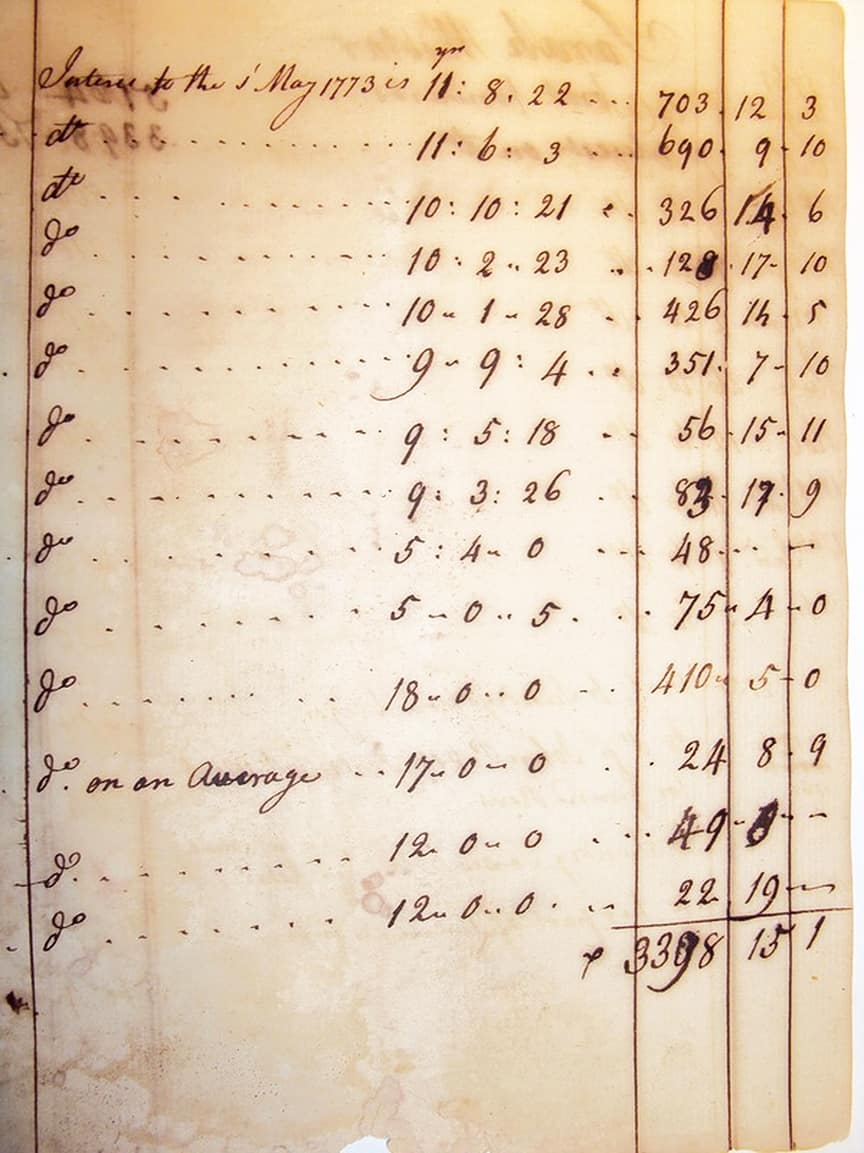 yrs
Interest to the 1st May 1773 is 11: 8. 22 ... 703. 12 3
do . . . . . . . . 11: 6: 3 ... 690. 9 - 10
do . . . . . . . . 10: 10: 21 . . 326 14. 6
do . . . . . . . . 10: 2.. 23 ... 128. 17- 10
do . . . . . . . . 10 - 1 - 28 . . 426 14 5
do . . . . . . . . 9 - 9: 4 . . 351. 7 - 10
do . . . . . . . . 9: 5: 18 . . 56. 15. 11
do . . . . . . . . 9: 3: 26 . . 83. 17. 9
do . . . . . . . . 5: 4 - 0 ... 48... -
do . . . . . . . . 5 - 0.. 5 . . . 75 - 4 - 0
do . . . . . . . . 18 - 0.. 0 . . 410 - 5 - 0
do. on an Average . . 17 - 0 - 0 . . 24 8. 9
do. . . . . . . . 12. 0 - 0 . . . 49 - 8 - -
do . . . . . . . 12 - 0 - 0 . . . 22. 19 -
3398 15 1